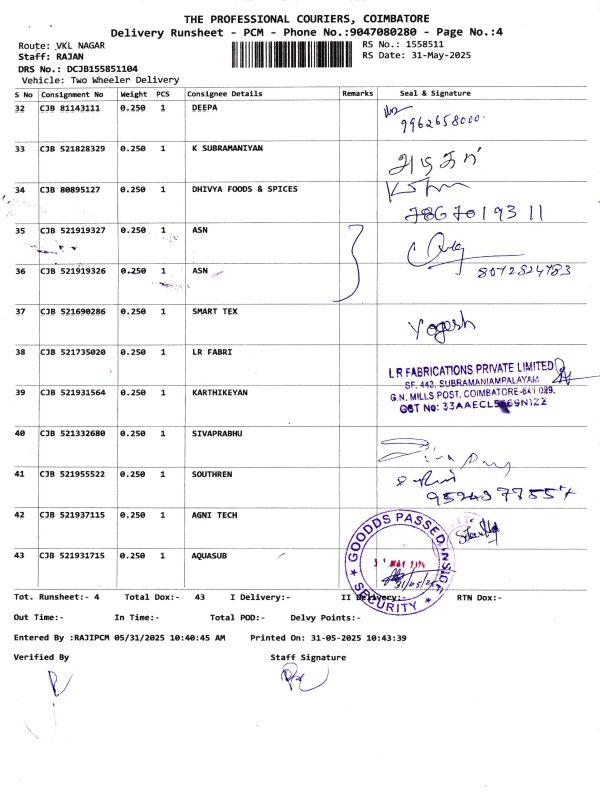 THE PROFESSIONAL COURIERS, COIMBATORE
Delivery Runsheet - PCM - Phone No.:9047080280 - Page No.:4
Route: VKL NAGAR
RS No.: 1558511
Staff: RAJAN
RS Date: 31-May-2025
DRS No.: DCJB155851104
Vehicle: Two Wheeler Delivery
S No Consignment No Weight PCS Consignee Details Remarks Seal & Signature
32 CJB 81143111 0.250 1 DEEPA
9962658000
33 CJB 521828329 0.250 1 K SUBRAMANIYAN
34 CJB 80895127 0.250 1 DHIVYA FOODS & SPICES
7867019311
35 CJB 521919327 0.250 1 ASN
36 CJB 521919326 0.250 1 ASN
8072824783
37 CJB 521690286 0.250 1 SMART TEX
Yogesh
38 CJB 521735020 0.250 1 LR FABRI
LR FABRICATIONS PRIVATE LIMITED
SF. 443, SUBRAMANIAMPALAYAM
G.N. MILLS POST, COIMBATORE-641 029.
39 CJB 521931564 0.250 1 KARTHIKEYAN
GST No:
40 CJB 521332680 0.250 1 SIVAPRABHU
41 CJB 521955522 0.250 1 SOUTHREN
42 CJB 521937115 0.250 1 AGNI TECH
GOODDS PASSED INSIDE
SECURITY
43 CJB 521931715 0.250 1 AQUASUB
Tot. Runsheet:- 4 Total Dox:- 43 I Delivery:- II Delivery:- RTN Dox:-
Out Time:- In Time:- Total POD:- Delvy Points:-
Entered By :RAJIPCM 05/31/2025 10:40:45 AM Printed On: 31-05-2025 10:43:39
Verified By Staff Signature